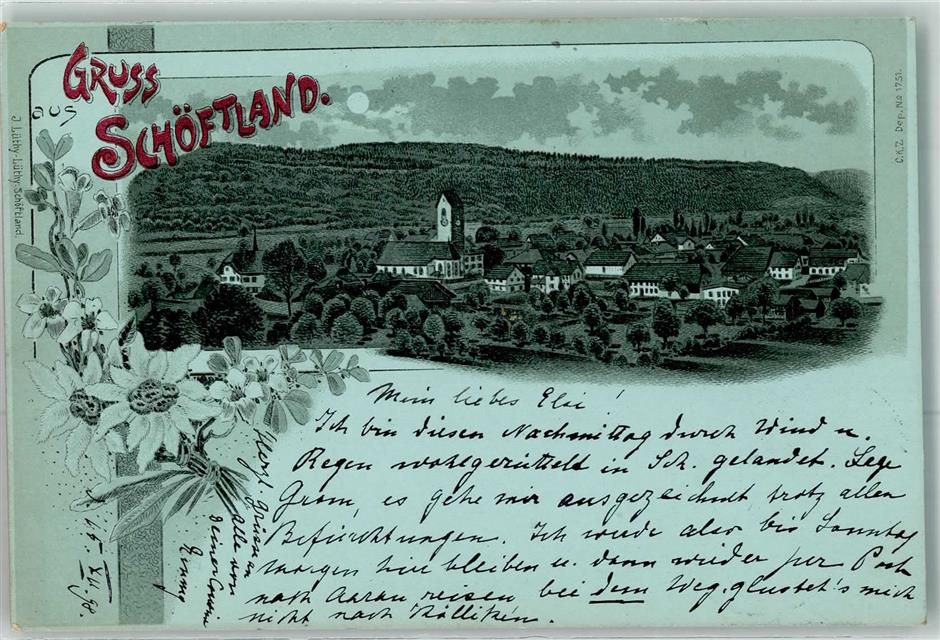 GRUSS
aus
SCHÖFTLAND.
J. Lüthy-Lüthy-Schöftland.
C.K.Z. Dep. No 1751.
Mein liebes Elsi!
Ich bin diesen Nachmittag durch Wind u.
Regen wohlgerüttelt in Sch. gelandet. Sage
Gram, es gehe mir ausgezeichnet trotz allen
Befürchtungen. Ich werde also bis Sonntag
morgen hier bleiben u. dann wieder per Post
nach Aarau reisen bei dem Weg. glustet's mich
nicht nach Kölliken.
Herzl. Grüsse an
Alle von
deiner Cousine
15. XII. 98.